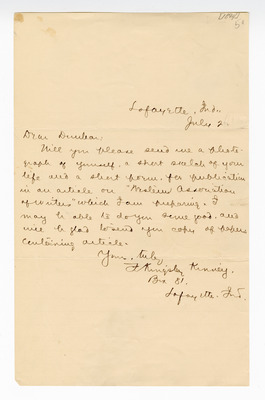 Lafayette, Ind.
July 2
Dear Dunbar,
Will you please send me a photo-
graph of yourself, a short sketch of your
life and a short poem, for publication
in an article on "Western Association
of writers" which I am preparing. I
may be able to do you some good, and
will be glad to send you copy of papers
containing article.
Yours truly,
Kingsley Kinney,
Box 81.
Lafayette, Ind.